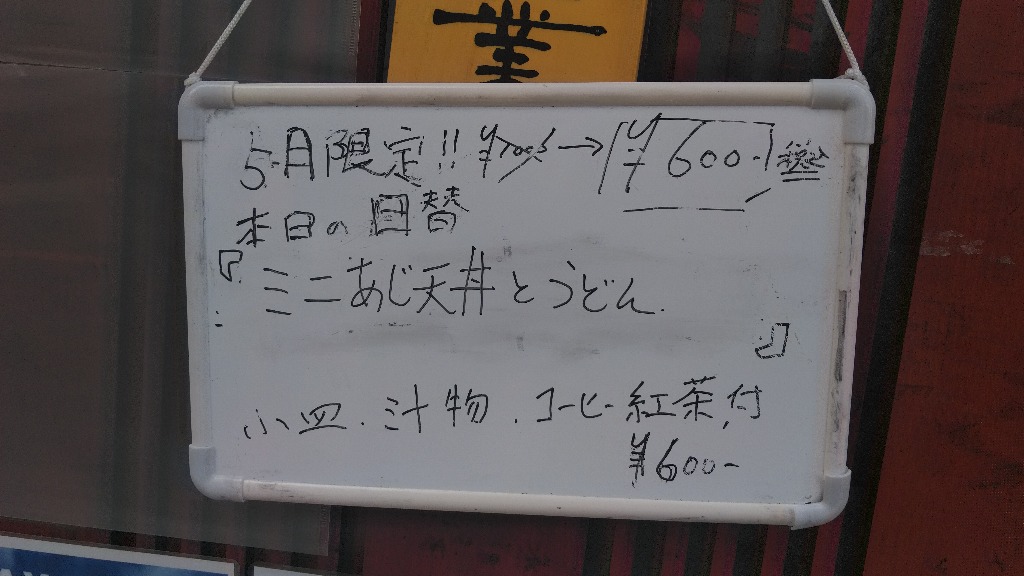 業
5月限定!! ¥700 → ¥600.-
本日の日替
『ミニあじ天丼とうどん.
』
小皿.汁物.コーヒー紅茶付
¥600-